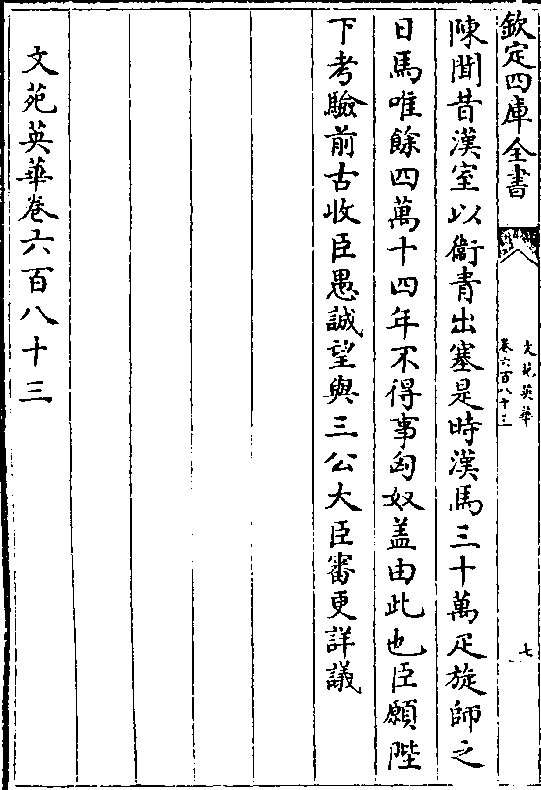 欽定四庫全書
文苑英華
卷六百八十三
七
陳聞昔漢室以衛青出塞是時漢馬三十萬疋旋師之
日馬唯餘四萬十四年不得事匈奴盖由此也臣願陛
下考驗前古收臣愚誠望與三公大臣審更詳議
文苑英華卷六百八十三